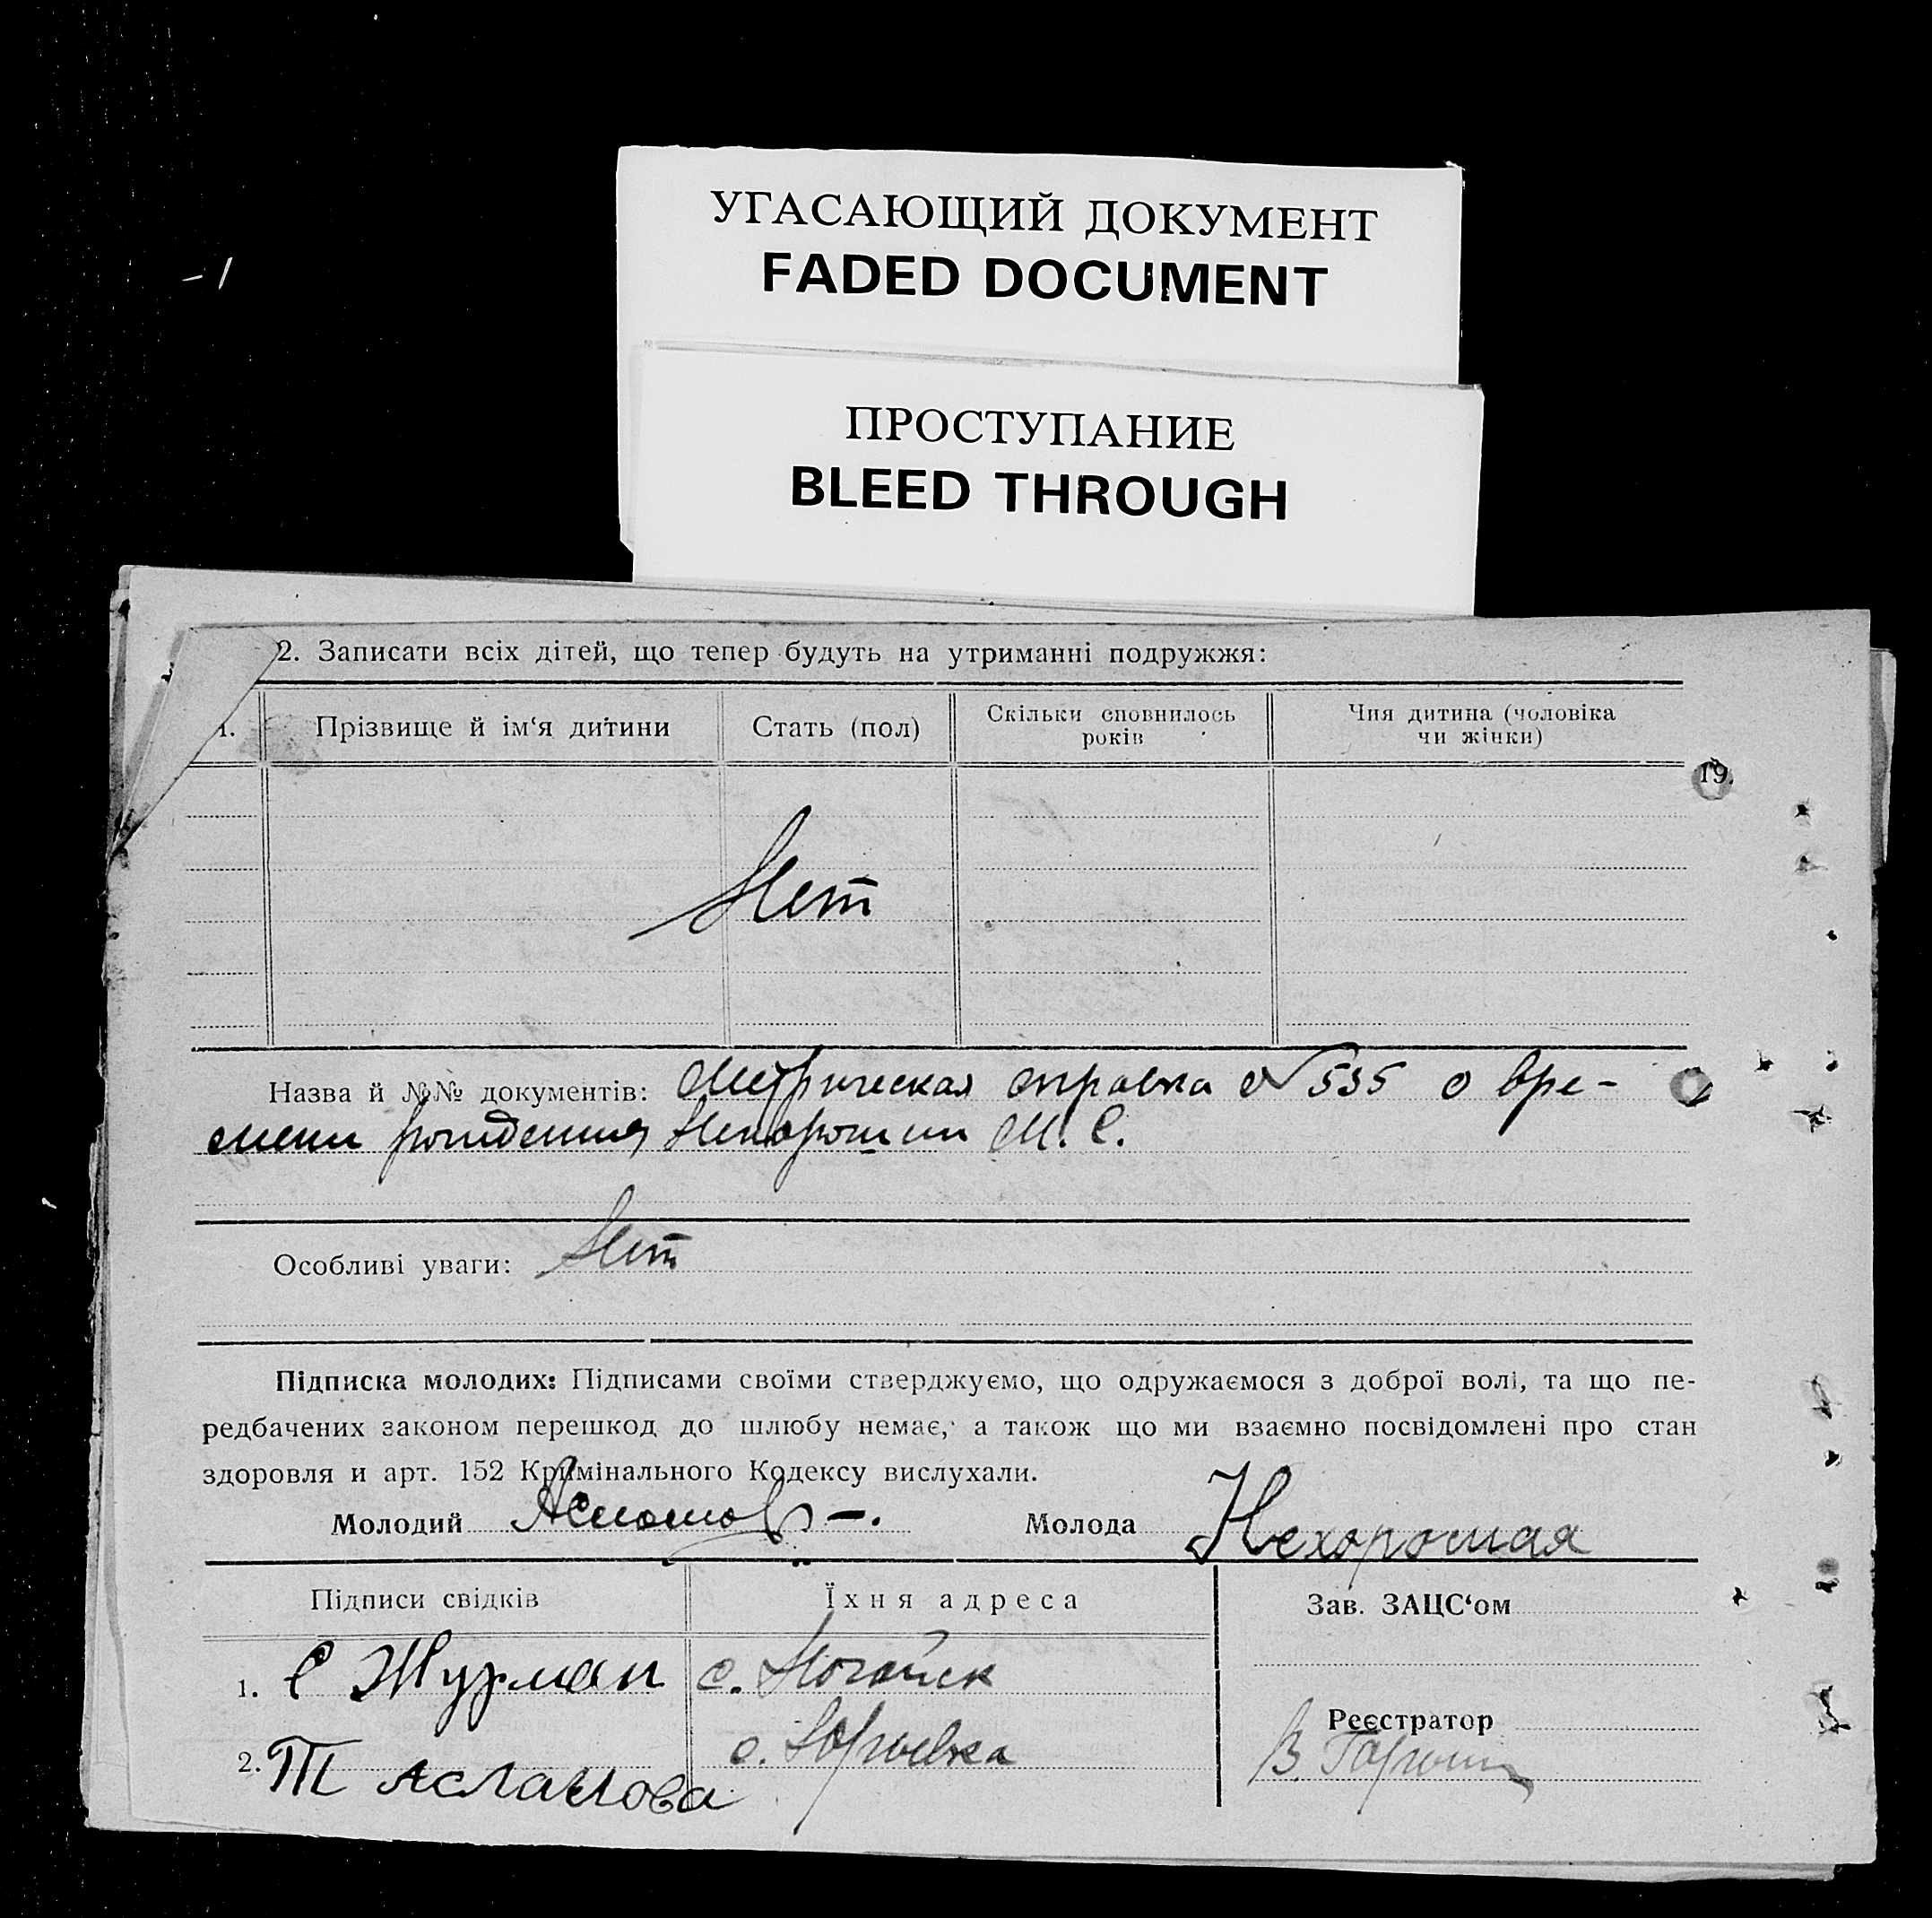 УГАСАЮЩИЙ ДОКУМЕНТ
FADED DOCUMENT
ПРОСТУПАНИЕ
BLEED THROUGH
2. Записати всіх дітей, що тепер будуть на утриманні подружжя:
Прізвище й ім‘я дитини
Стать (пол)
Скільки сповнилось
років
Чия дитина (чоловіка
чи жінки)
19
Нет
Назва й №№ документів: Метрическая справка № 535 о вре-
мени рождения Нехорошии М. С.
Особливі уваги: Нет
Підписка молодих: Підписами своїми стверджуємо, що одружаємося з доброї волі, та що пе-
редбачених законом перешкод до шлюбу немає, а також що ми взаємно посвідомлені про стан
здоровля и арт. 152 Кримінального Кодексу вислухали.
Молодий Молода Нехорошая
Підписи свідків
Їхня адреса
Зав. ЗАЦС‘ом
1. С Журман с. Ногайск
Реєстратор
2. Т Асламова с. Юрьевка